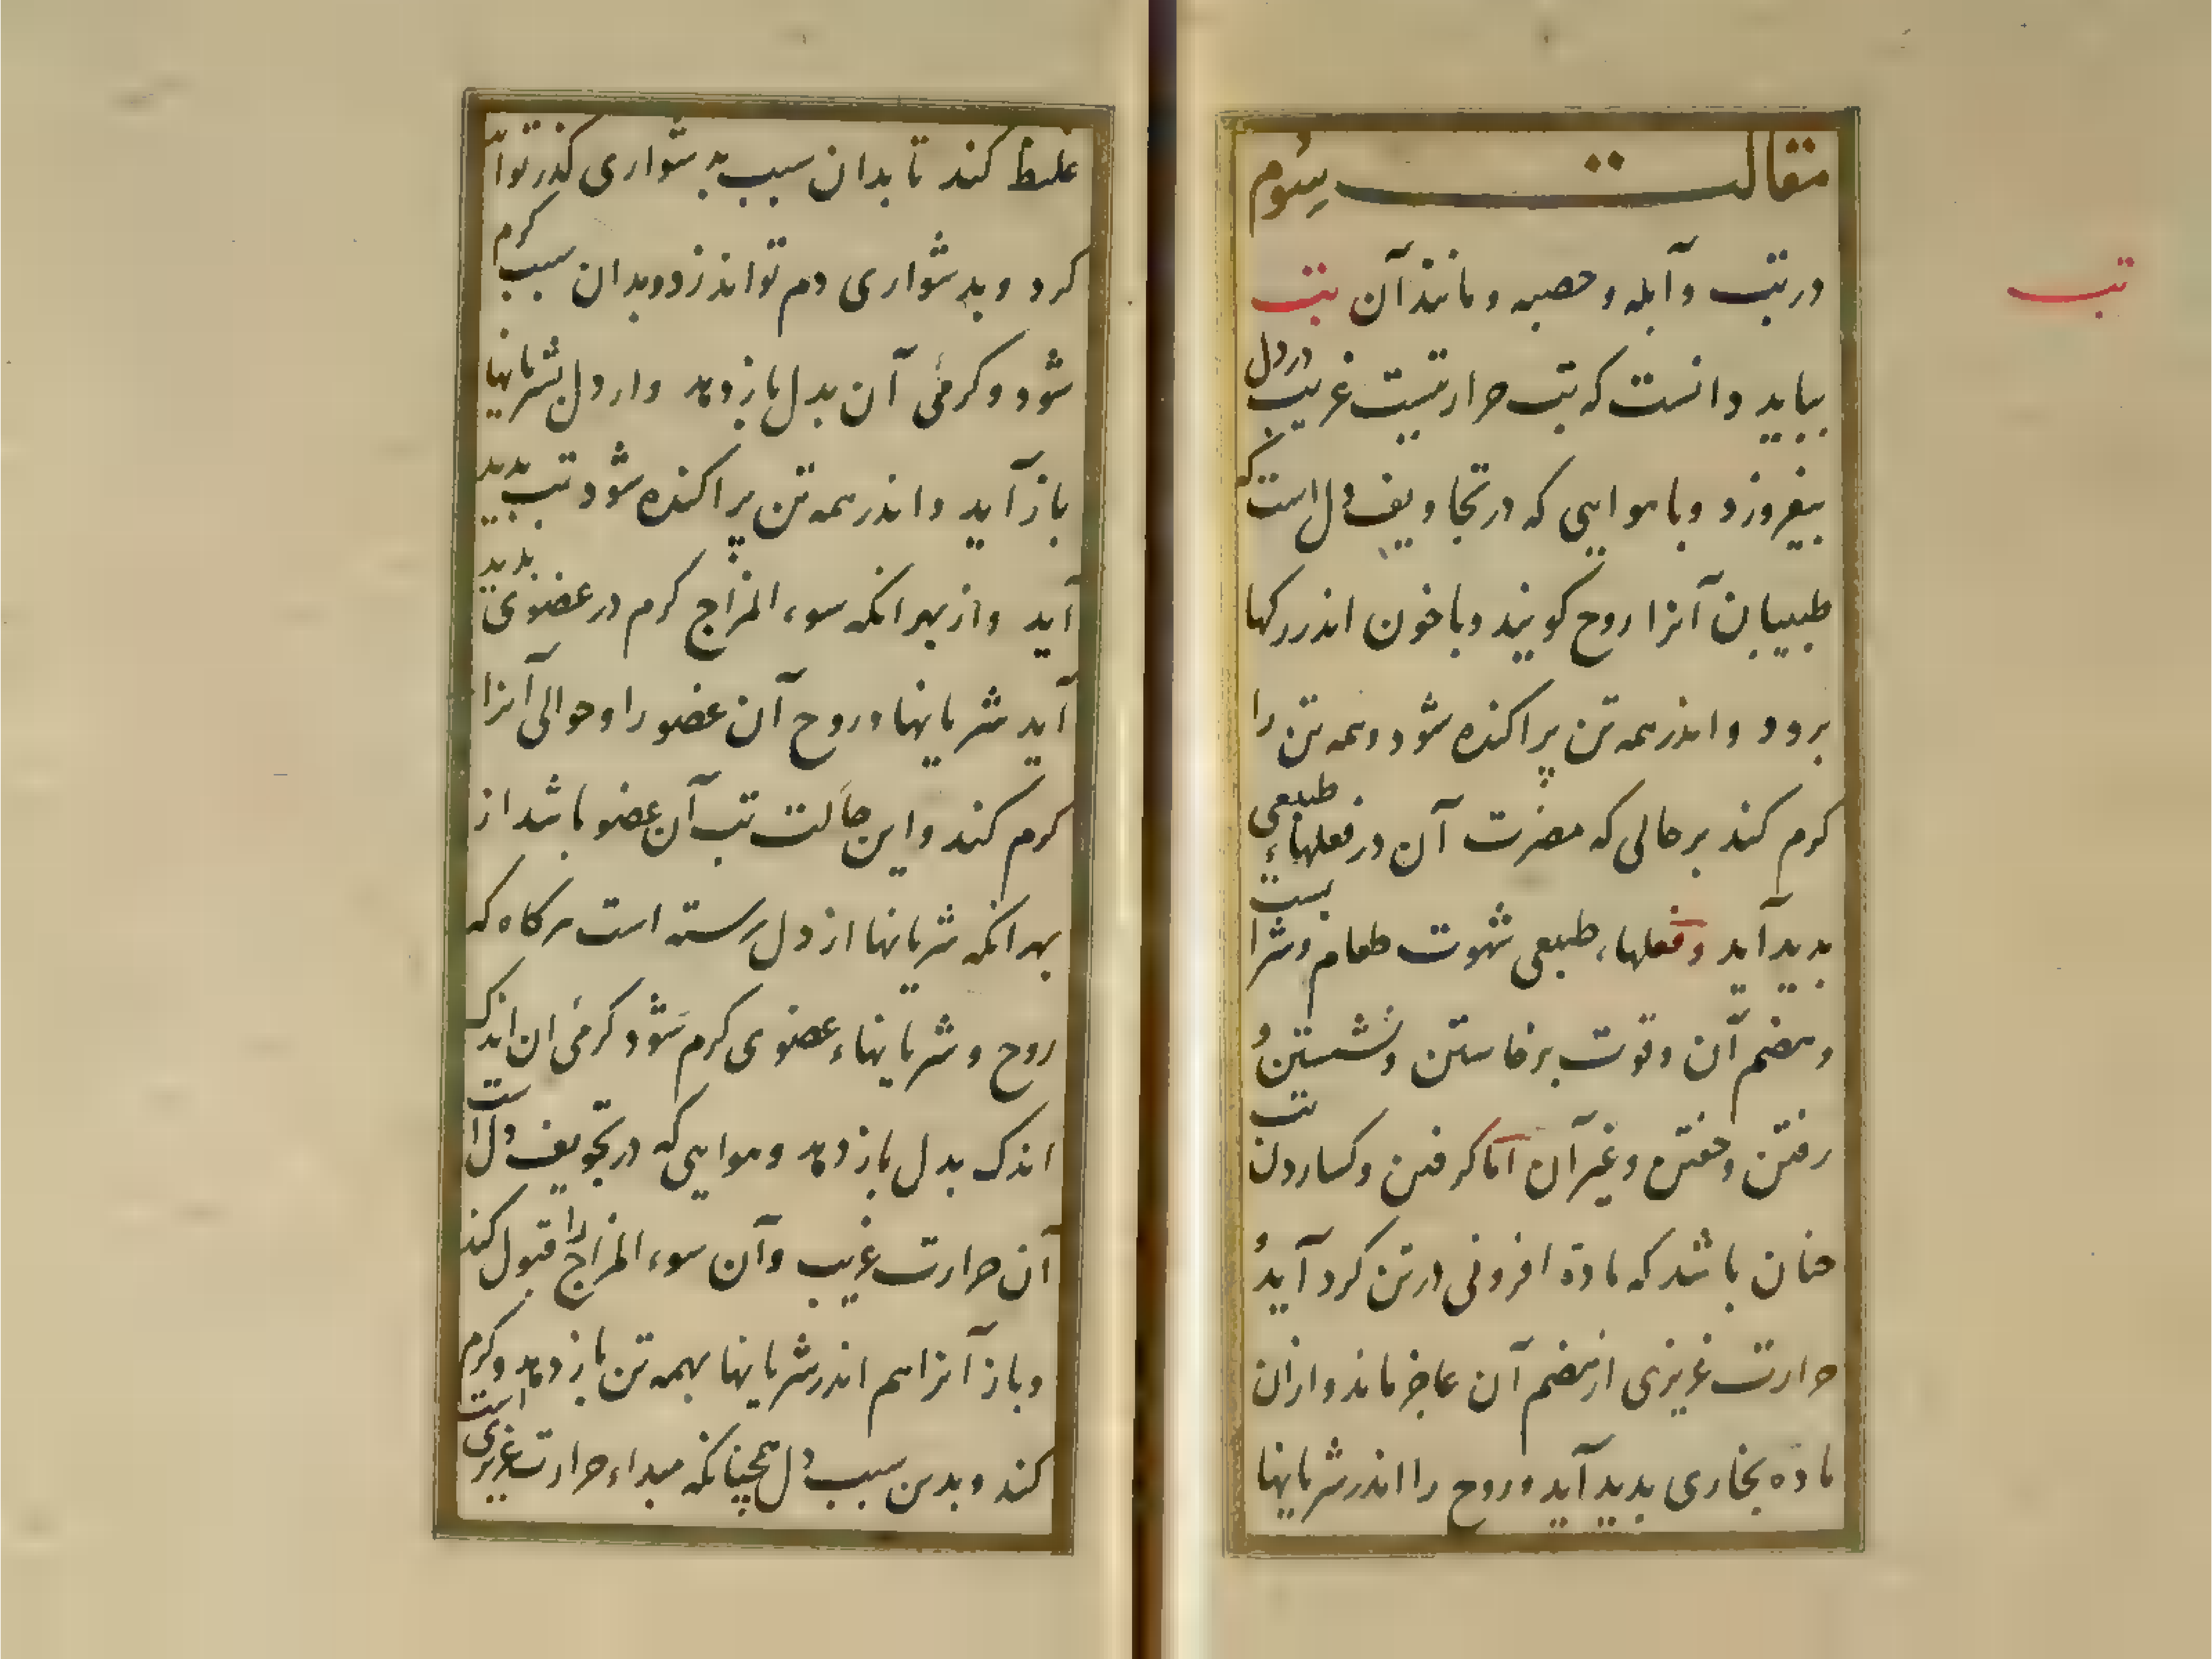 مقالت سوم
در تب و آبله و حصبه و مانند آن تب
تب
ببايد دانست که تب حرارتيست غريب در دل
بيفروزد و با هوايى که در تجاويف دل است که
طبيبان آنرا روح کويند و با خون اندر رکها
برود و اندر همه تن پراکنده شود و همه تن را
کرم کند بر حالى که مضرت آن در فعلهاء طبيعى
پديد آيد و فعلهاء طبيعى شهوت طعام و شرابست
و هضم آن و قوت برخاستن و نشستن و
رفتن و خفتن و غير آن اما کرفتن و کساردن تب
چنان باشد که مادة افزونى در تن کرد آيد و
حرارت غريزى از هضم آن عاجز ماند و از ان
ماده بخارى بديد آيد و روح را اندر شريانها
غليظ کند تا بدان سبب به شوارى کذر توان
کرد و بدشوارى دم تواند زد و بدان سبب کرم
شود و کرمئ آن بدل باز دهد و از دل بشريانها
باز آيد و اندر همه تن پراکنده شود تب بديد
آيد و از بهر انکه سوء المزاج کرم در عضوى بديد
آيد شريانها و روح آن عضو را و حوالى آنرا
کرم کند و اين حالت تب آن عضو باشد از
بهر انکه شريانها از دل رسته است هرکاه که
روح و شريانهاء عضوى کرم شود کرمى ان اندک
اندک بدل باز دهد و هوايى که در تجويف دل است
آن حرارت غريب و آن سوء المزاج را قبول کند
و باز آنرا هم اندر شريانها بهمه تن باز دهد و کرم
کند و بدين سبب دل همچنانکه مبداء حرارت غريزى است